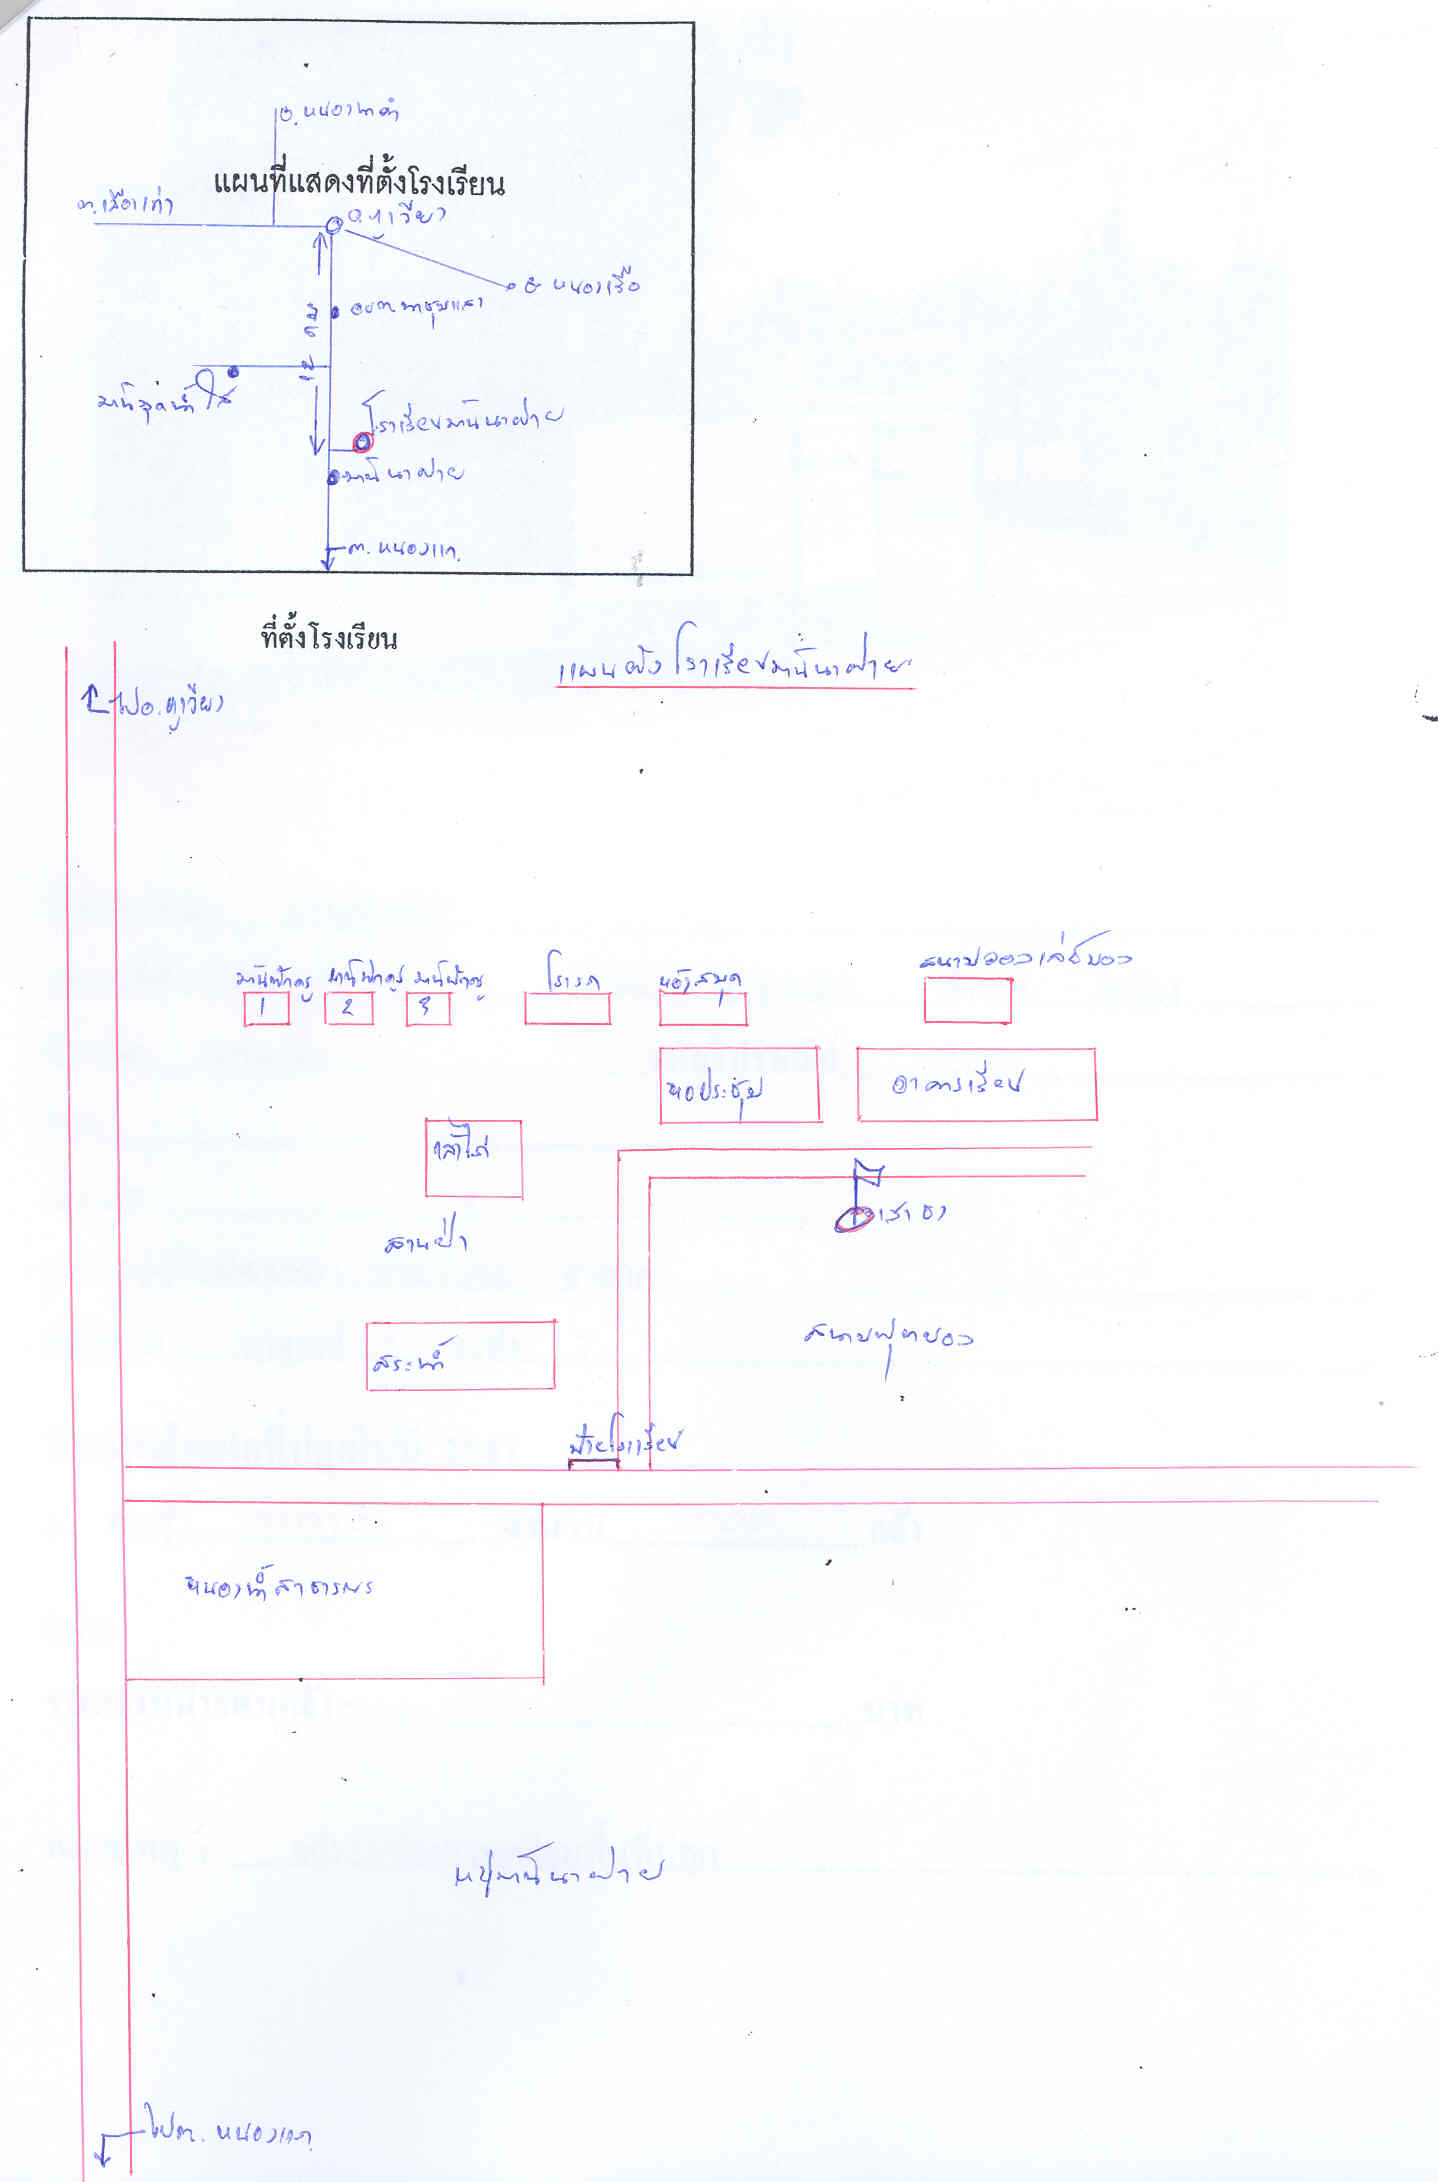 อ.หนองนาคำ
แผนที่แสดงที่ตั้งโรงเรียน
ต.เมืองเก่า
อ.ภูเวียง
อ.หนองเรือ
อบต.นาชุมแสง
โรงเรียนบ้านนาฝาย
บ้านนาฝาย
ต.หนองแก
ที่ตั้งโรงเรียน
แผนผังโรงเรียนบ้านนาฝาย
ไปอ.ภูเวียง
บ้านพักครู บ้านพักครู บ้านพักครู โรงรถ ห้องสมุด สนามวอลเล่ย์บอล
1 2 3
หอประชุม อาคารเรียน
เล้าไก่
เสาธง
สวนป่า
สนามฟุตบอล
สระน้ำ
ป้ายโรงเรียน
หนองน้ำสาธารณะ
หมู่บ้านนาฝาย
ไปต.หนองแก